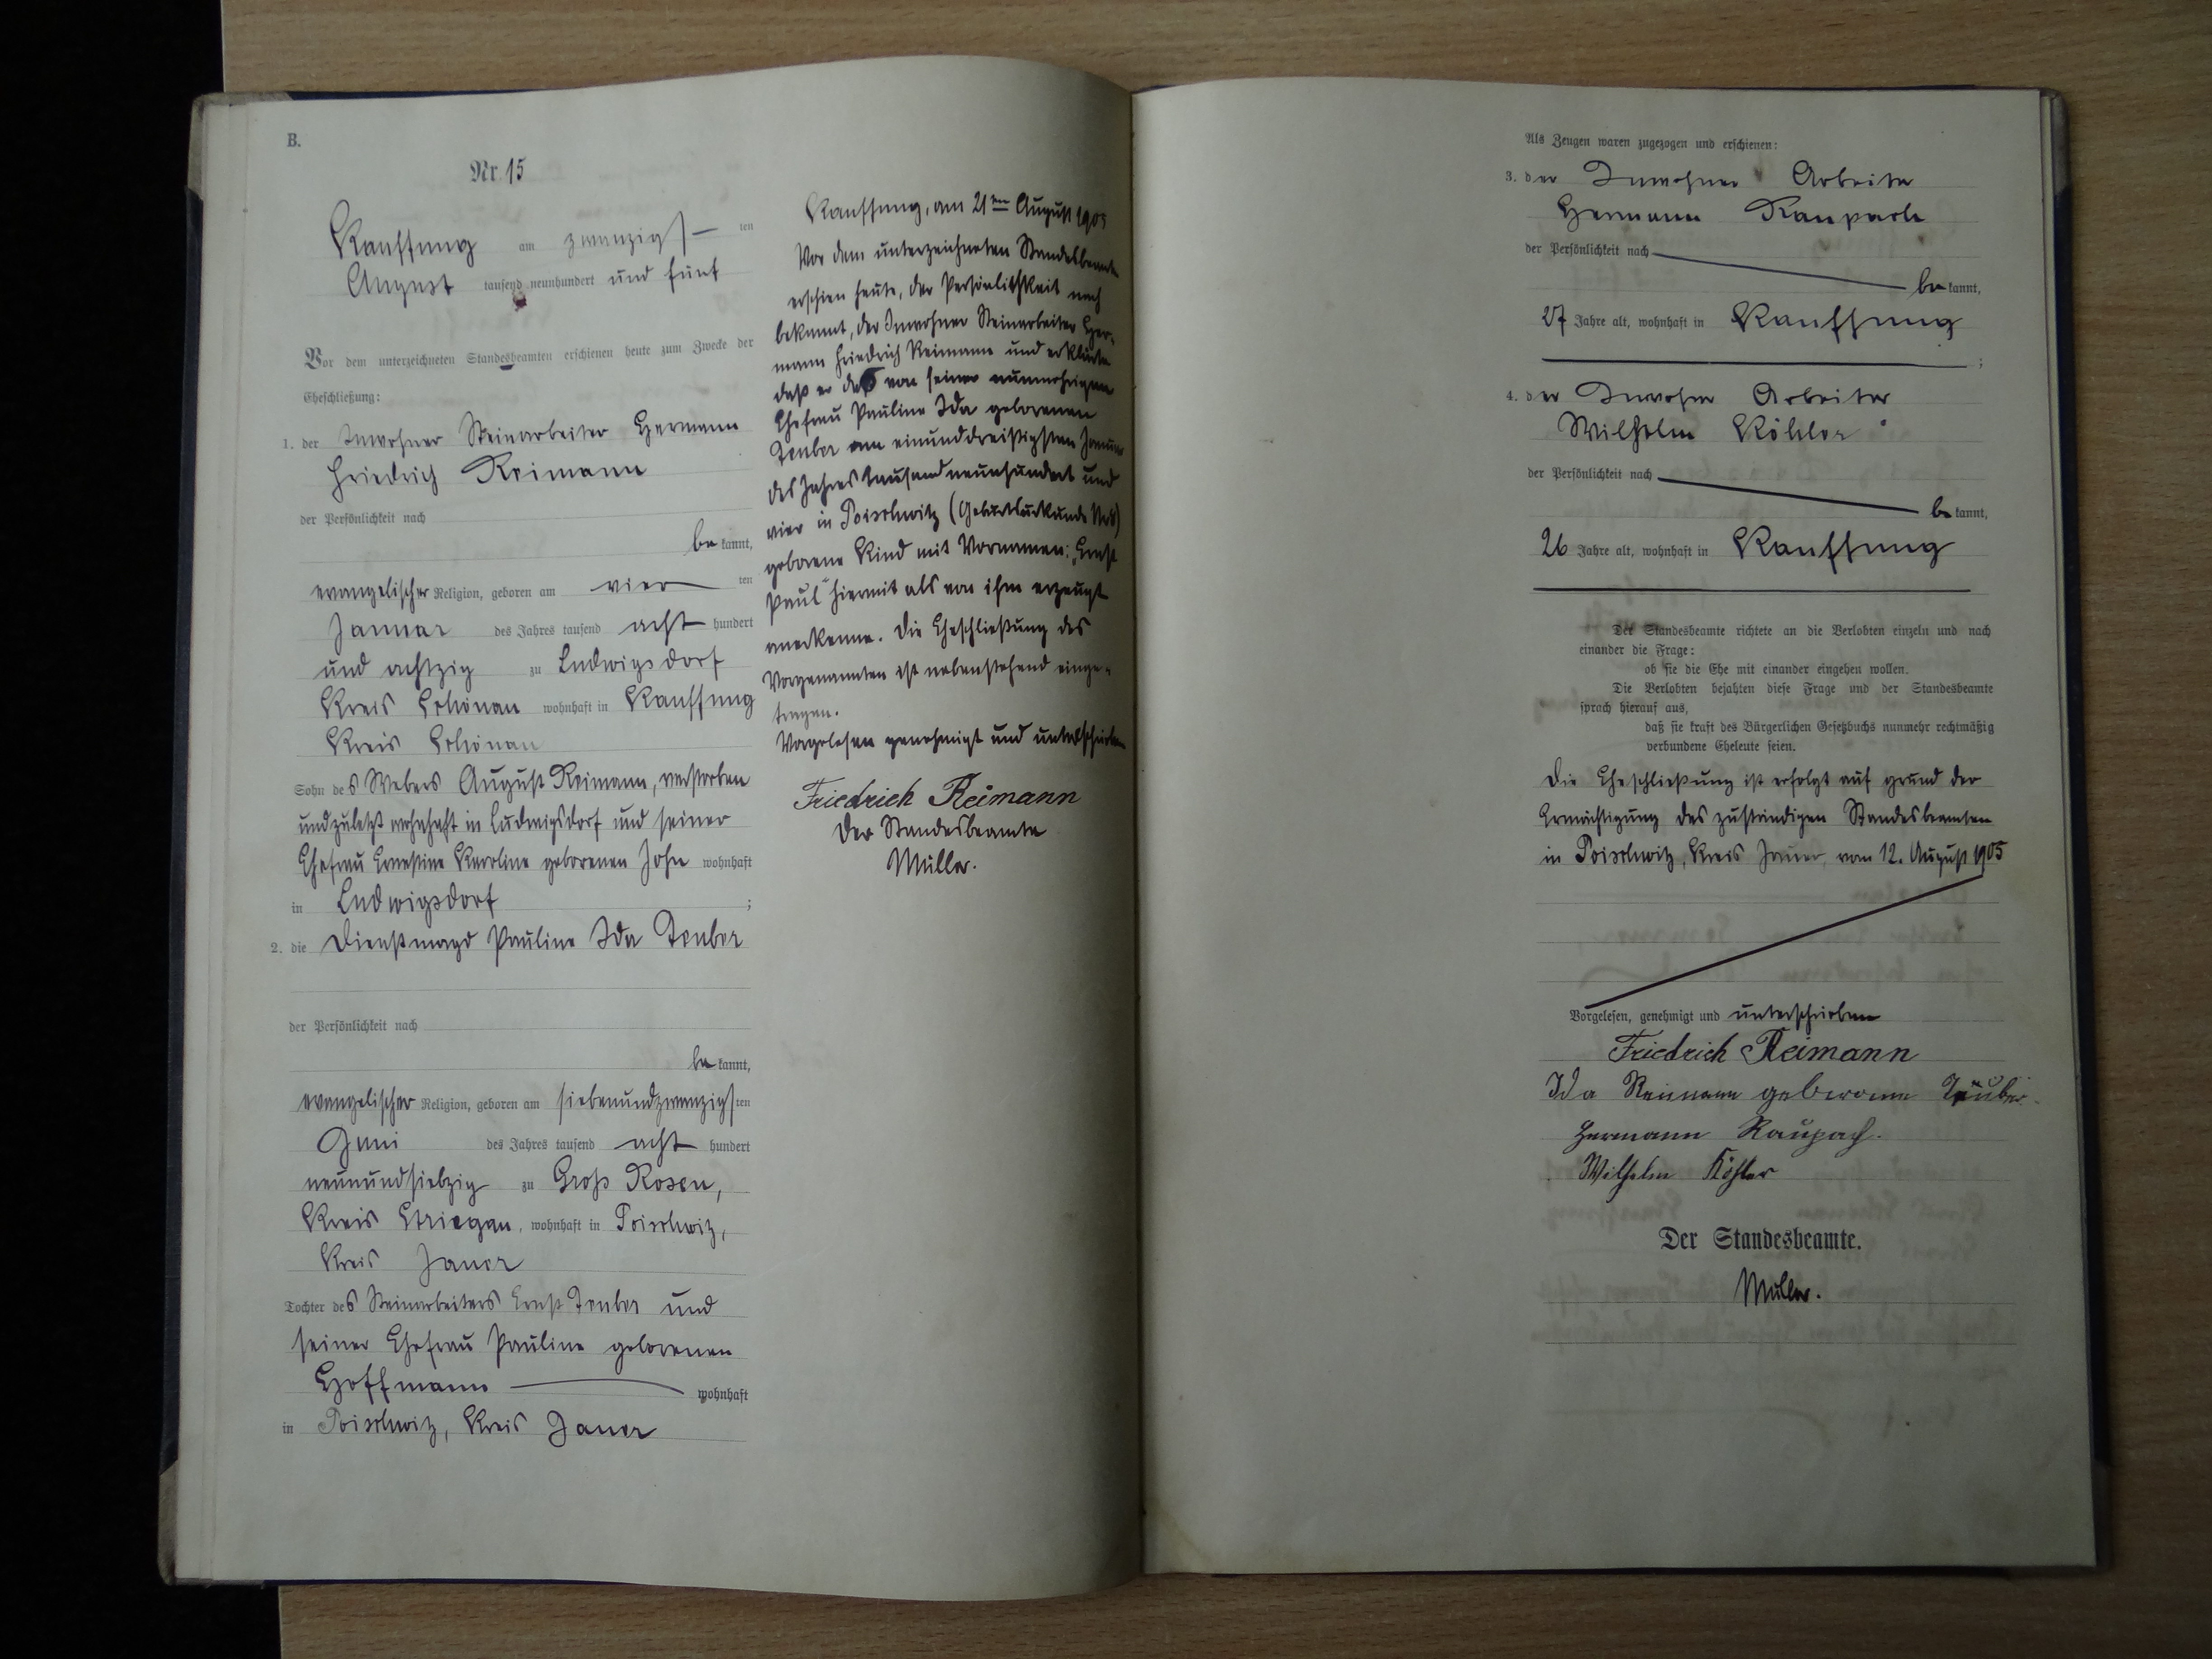 B.
Nr. 15
Kauffung am zwanzigsten
August tausend neunhundert und fünf
Vor dem unterzeichneten Standesbeamten erschienen heute zum Zwecke der
Eheschließung:
1. der Inwohner Steinarbeiter Hermann
Friedrich Reimann
der Persönlichkeit nach
bekannt,
evangelischer Religion, geboren am vierten
Januar des Jahres tausend achthundert
und achtzig zu Ludwigsdorf
Kreis Schönau wohnhaft in Kauffung
Kreis Schönau
Sohn des Webers August Reimann, verstorben
und zuletzt wohnhaft in Ludwigsdorf und seiner
Ehefrau Ernestine Karoline geborenen John wohnhaft
in Ludwigsdorf ;
2. die Dienstmagd Pauline Ida Teuber
der Persönlichkeit nach
bekannt,
evangelischer Religion, geboren am siebenundzwanzigsten
Juni des Jahres tausend achthundert
neunundsiebzig zu Groß Rosen,
Kreis Striegau, wohnhaft in Poischwitz,
Kreis Jauer
Tochter des Steinarbeiters Ernst Teuber und
seiner Ehefrau Pauline geborenen
Hoffmann wohnhaft
in Poischwitz, Kreis Jauer
Kauffung, am 21ten August 1905
Vor dem unterzeichneten Standesbeamten
erschien heute, der Persönlichkeit nach
bekannt, der Inwohner Steinarbeiter Her-
mann Friedrich Reimann und erklärte
daß er das von seiner nunmehrigen
Ehefrau Pauline Ida geborenen
Teuber am einunddreißigsten Januar
des Jahres tausendneunhundert und
vier in Poischwitz (Geburtsurkunde
geborene Kind mit Vornamen: „Ernst
Paul“ hiermit als von ihm erzeugt
anerkenne. Die Eheschließung des
Vorgenannten ist nebenstehend einge-
tragen.
Vorgelesen genehmigt und unterschrieben
Friedrich Reimann
Der Standesbeamte
Müller.
Als Zeugen waren zugezogen und erschienen:
3. der Inwohner Arbeiter
Hermann Raupach
der Persönlichkeit nach
bekannt,
27 Jahre alt, wohnhaft in Kauffung
;
4. der Inwohner Arbeiter
Wilhelm Köhler
der Persönlichkeit nach
bekannt,
26 Jahre alt, wohnhaft in Kauffung
Der Standesbeamte richtete an die Verlobten einzeln und nach
einander die Frage:
ob sie die Ehe mit einander eingehen wollen.
Die Verlobten bejahten diese Frage und der Standesbeamte
sprach hierauf aus,
daß sie kraft des Bürgerlichen Gesetzbuchs nunmehr rechtmäßig
verbundene Eheleute seien.
Die Eheschließung ist erfolgt auf grund der
Ermächtigung des zuständigen Standesbeamten
in Poischwitz, Kreis Jauer, vom 12. August 1905
Vorgelesen, genehmigt und unterschrieben
Friedrich Reimann
Ida Reimann geborene Täuber.
Hermann Raupach.
Wilhelm Köhler
Der Standesbeamte.
Müller.